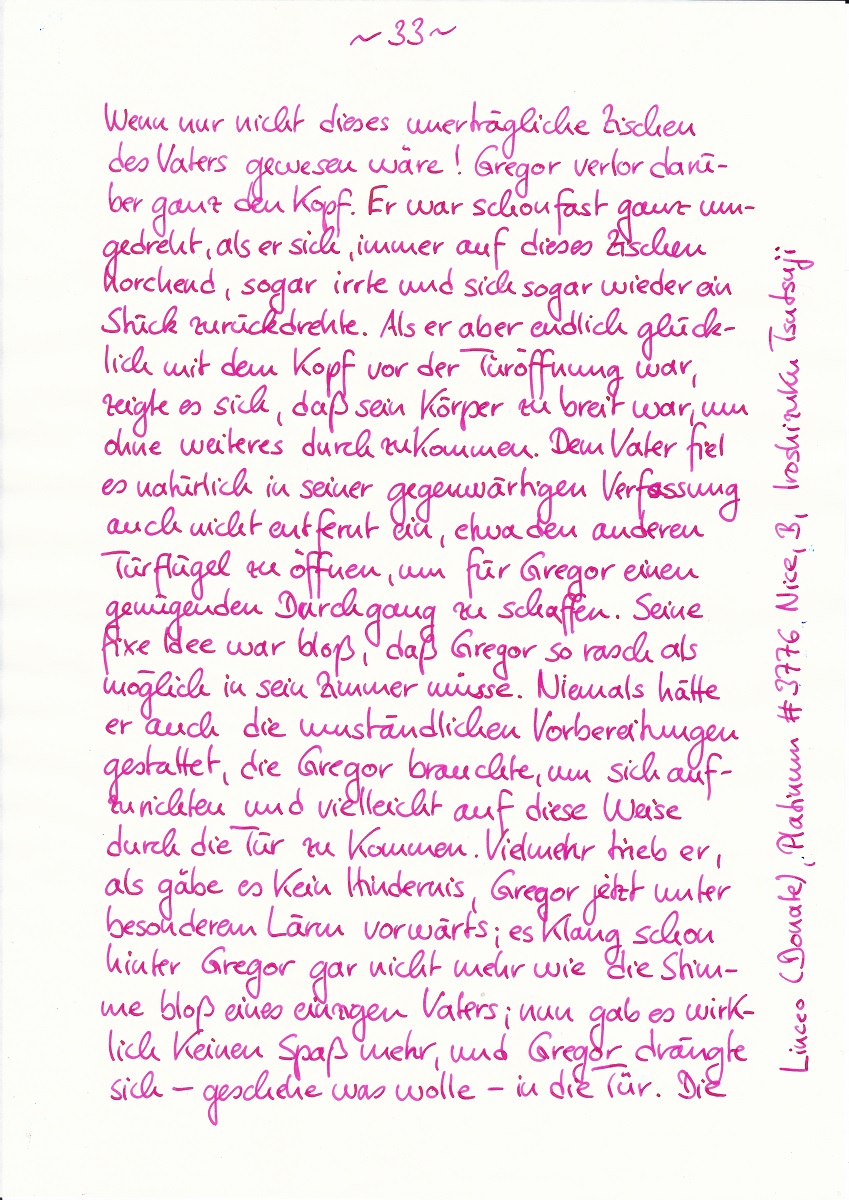 ~ 33 ~
Wenn nur nicht dieses unerträgliche Zischen
des Vaters gewesen wäre! Gregor verlor darü-
ber ganz den Kopf. Er war schon fast ganz um-
gedreht, als er sich, immer auf dieses Zischen
horchend, sogar irrte und sich sogar wieder ein
Stück zurückdrehte. Als er aber endlich glück-
lich mit dem Kopf vor der Türöffnung war,
zeigte es sich, daß sein Körper zu breit war, um
ohne weiteres durchzukommen. Dem Vater fiel
es natürlich in seiner gegenwärtigen Verfassung
auch nicht entfernt ein, etwa den anderen
Türflügel zu öffnen, um für Gregor einen
genügenden Durchgang zu schaffen. Seine
fixe Idee war bloß, daß Gregor so rasch als
möglich in sein Zimmer müsse. Niemals hätte
er auch die umständlichen Vorbereitungen
gestattet, die Gregor brauchte, um sich auf-
zurichten und vielleicht auf diese Weise
durch die Tür zu kommen. Vielmehr trieb er,
als gäbe es kein Hindernis, Gregor jetzt unter
besonderem Lärm vorwärts; es klang schon
hinter Gregor gar nicht mehr wie die Stim-
me bloß eines einzigen Vaters; nun gab es wirk-
lich keinen Spaß mehr, und Gregor drängte
sich – geschehe was wolle – in die Tür. Die
Linceo (Donate), Platinum #3776 Nice, B, Iroshizuku Tsutsuji